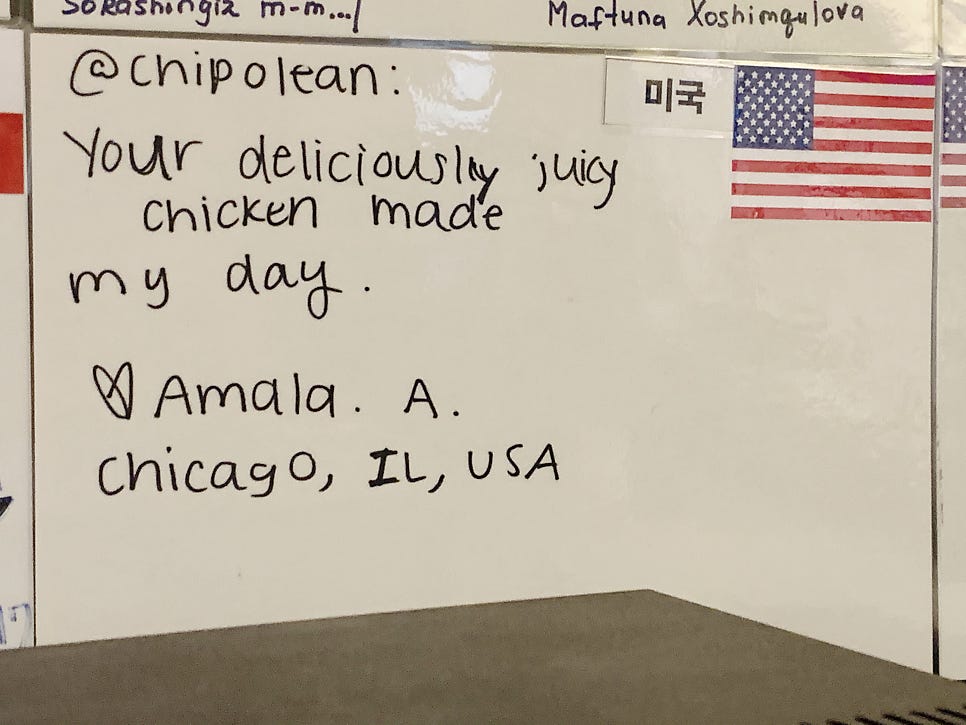 m-m...!
Maftuna Xoshimqulova
@chipolean:
미국
Your deliciously juicy
chicken made
my day.
♡ Amala. A.
Chicago, IL, USA